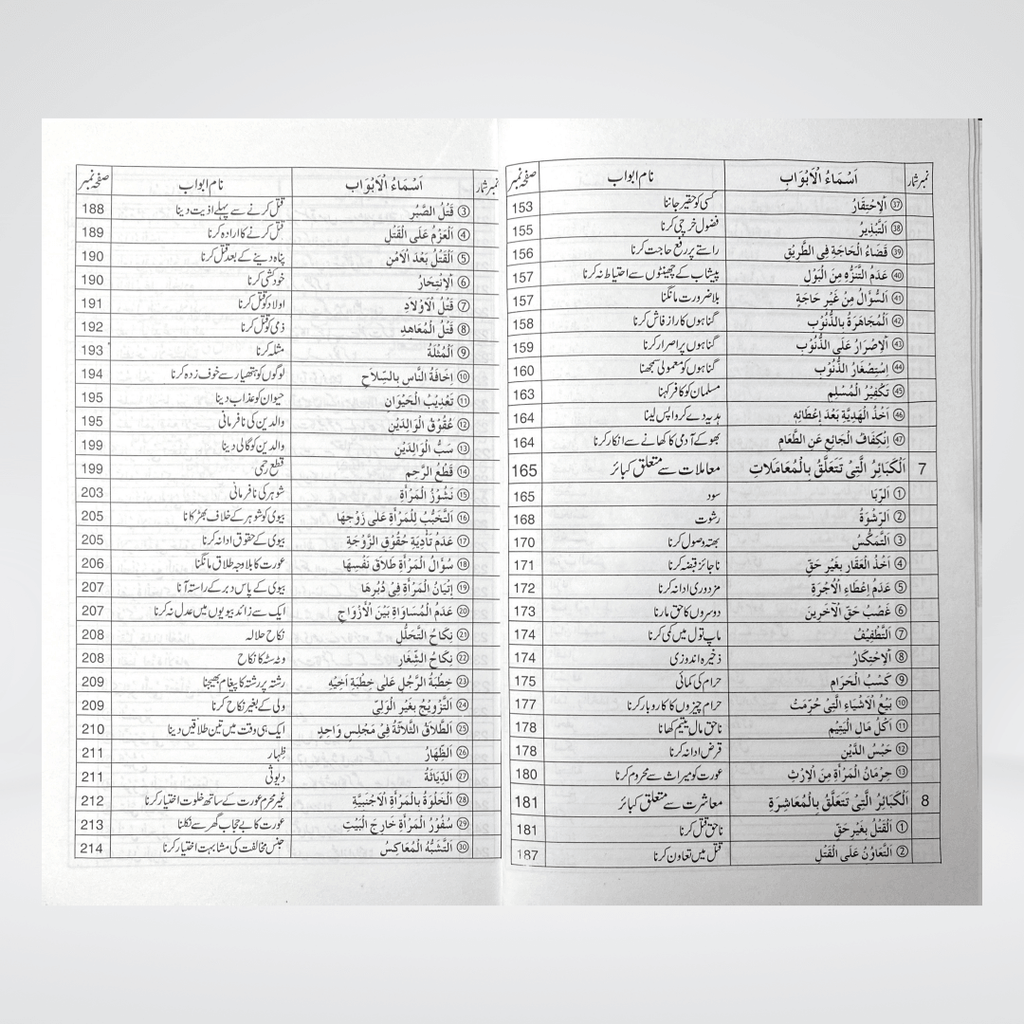 نمبر شمار اَسْمَاءُ الْاَبْوَاب نام ابواب صفحہ نمبر
㊲ اَلْاِحْتِقَارُ کسی کو حقیر جاننا 153
㊳ اَلتَّبْذِيرُ فضول خرچی کرنا 155
㊴ قَضَاءُ الْحَاجَةِ فِى الطَّرِيْقِ راستے پر رفع حاجت کرنا 156
㊵ عَدَمُ التَّنَزُّهِ مِنَ الْبَوْلِ پیشاب کے چھینٹوں سے احتیاط نہ کرنا 157
㊶ اَلسُّؤَالُ مِنْ غَيْرِ حَاجَةٍ بلا ضرورت مانگنا 157
㊷ اَلْمُجَاهَرَةُ بِالذُّنُوْبِ گناہوں کا راز فاش کرنا 158
㊸ اَلْاِصْرَارُ عَلَى الذُّنُوْبِ گناہوں پر اصرار کرنا 159
㊹ اِسْتِصْغَارُ الذُّنُوْبِ گناہوں کو معمولی سمجھنا 160
㊺ تَكْفِيْرُ الْمُسْلِمِ مسلمان کو کافر کہنا 163
㊻ اَخْذُ الْهَدِيَّةِ بَعْدَ اِعْطَائِهِ ہدیہ دے کر واپس لینا 164
㊼ اِنْكِفَافُ الْجَائِعِ عَنِ الطَّعَامِ بھوکے آدمی کا کھانے سے انکار کرنا 164
7 اَلْكَبَائِرُ الَّتِىْ تَتَعَلَّقُ بِالْمُعَامَلَاتِ معاملات سے متعلق کبائر 165
① اَلرِّبَا سود 165
② اَلرِّشْوَةُ رشوت 168
③ اَلتَّمَكُّسُ بھتہ وصول کرنا 170
④ اَخْذُ الْعَقَارِ بِغَيْرِ حَقٍّ ناجائز قبضہ کرنا 171
⑤ عَدَمُ اِعْطَاءِ الْاُجْرَةِ مزدوری ادا نہ کرنا 172
⑥ غَصْبُ حَقِّ الْآخَرِيْنَ دوسروں کا حق مارنا 173
⑦ اَلتَّطْفِيْفُ ماپ تول میں کمی کرنا 174
⑧ اَلْاِحْتِكَارُ ذخیرہ اندوزی 174
⑨ كَسْبُ الْحَرَامِ حرام کی کمائی 175
⑩ بَيْعُ الْاَشْيَاءِ الَّتِىْ حُرِّمَتْ حرام چیزوں کا کاروبار کرنا 177
⑪ اَكْلُ مَالِ الْيَتِيْمِ ناحق مال یتیم کھانا 178
⑫ حَبْسُ الدَّيْنِ قرض ادا نہ کرنا 178
⑬ حِرْمَانُ الْمَرْأَةِ مِنَ الْاِرْثِ عورت کو میراث سے محروم کرنا 180
8 اَلْكَبَائِرُ الَّتِىْ تَتَعَلَّقُ بِالْمُعَاشِرَةِ معاشرت سے متعلق کبائر 181
① اَلْقَتْلُ بِغَيْرِ حَقٍّ ناحق قتل کرنا 181
② اَلتَّعَاوُنُ عَلَى الْقَتْلِ قتل میں تعاون کرنا 187
نمبر شمار اَسْمَاءُ الْاَبْوَاب نام ابواب صفحہ نمبر
③ قَتْلُ الصَّبْرِ قتل کرنے سے پہلے اذیت دینا 188
④ اَلْعَزْمُ عَلَى الْقَتْلِ قتل کرنے کا ارادہ کرنا 189
⑤ اَلْقَتْلُ بَعْدَ الْاَمْنِ پناہ دینے کے بعد قتل کرنا 190
⑥ اَلْاِنْتِحَارُ خودکشی کرنا 190
⑦ قَتْلُ الْاَوْلَادِ اولاد کو قتل کرنا 191
⑧ قَتْلُ الْمُعَاهِدِ ذمی کو قتل کرنا 192
⑨ اَلْمُثْلَةُ مثلہ کرنا 193
⑩ اِخَافَةُ النَّاسِ بِالسِّلَاحِ لوگوں کو ہتھیار سے خوف زدہ کرنا 194
⑪ تَعْذِيْبُ الْحَيْوَانِ حیوان کو عذاب دینا 195
⑫ عُقُوْقُ الْوَالِدَيْنِ والدین کی نافرمانی 195
⑬ سَبُّ الْوَالِدَيْنِ والدین کو گالی دینا 199
⑭ قَطْعُ الرَّحِمِ قطع رحمی 199
⑮ نَشُوْزُ الْمَرْأَةِ شوہر کی نافرمانی 203
⑯ اَلتَّخَبُّبُ لِلْمَرْأَةِ عَلٰى زَوْجِهَا بیوی کو شوہر کے خلاف بھڑکانا 205
⑰ عَدَمُ تَأْدِيَةِ حُقُوْقِ الزَّوْجَةِ بیوی کے حقوق ادا نہ کرنا 205
⑱ سُؤَالُ الْمَرْأَةِ طَلَاقَ نَفْسِهَا عورت کا بلاوجہ طلاق مانگنا 206
⑲ اِتْيَانُ الْمَرْأَةِ فِىْ دُبُرِهَا بیوی کے پاس دبر کے راستہ آنا 207
⑳ عَدَمُ الْمُسَاوَاةِ بَيْنَ الْأَزْوَاجِ ایک سے زائد بیویوں میں عدل نہ کرنا 207
㉑ نِكَاحُ التَّحَلُّلِ نکاح حلالہ 208
㉒ نِكَاحُ الشِّغَارِ وٹہ سٹہ کا نکاح 208
㉓ خِطْبَةُ الرَّجُلِ عَلٰى خِطْبَةِ اَخِيْهِ رشتہ پر رشتہ کا پیغام بھیجنا 209
㉔ اَلتَّزْوِيْجُ بِغَيْرِ الْوَلِيِّ ولی کے بغیر نکاح کرنا 209
㉕ اَلطَّلَاقُ الثَّلَاثَةُ فِىْ مَجْلِسٍ وَاحِدٍ ایک ہی وقت میں تین طلاقیں دینا 210
㉖ اَلظِّهَارُ ظہار 211
㉗ اَلدِّيَاثَةُ دیوثی 211
㉘ اَلْخَلْوَةُ بِالْمَرْأَةِ الْاَجْنَبِيَّةِ غیر محرم عورت کے ساتھ خلوت اختیار کرنا 212
㉙ سُفُوْرُ الْمَرْأَةِ خَارِجَ الْبَيْتِ عورت کا بے حجاب گھر سے نکلنا 213
㉚ اَلتَّشَبُّهُ الْمُعَاكِسُ جنس مخالفت کی مشابہت اختیار کرنا 214